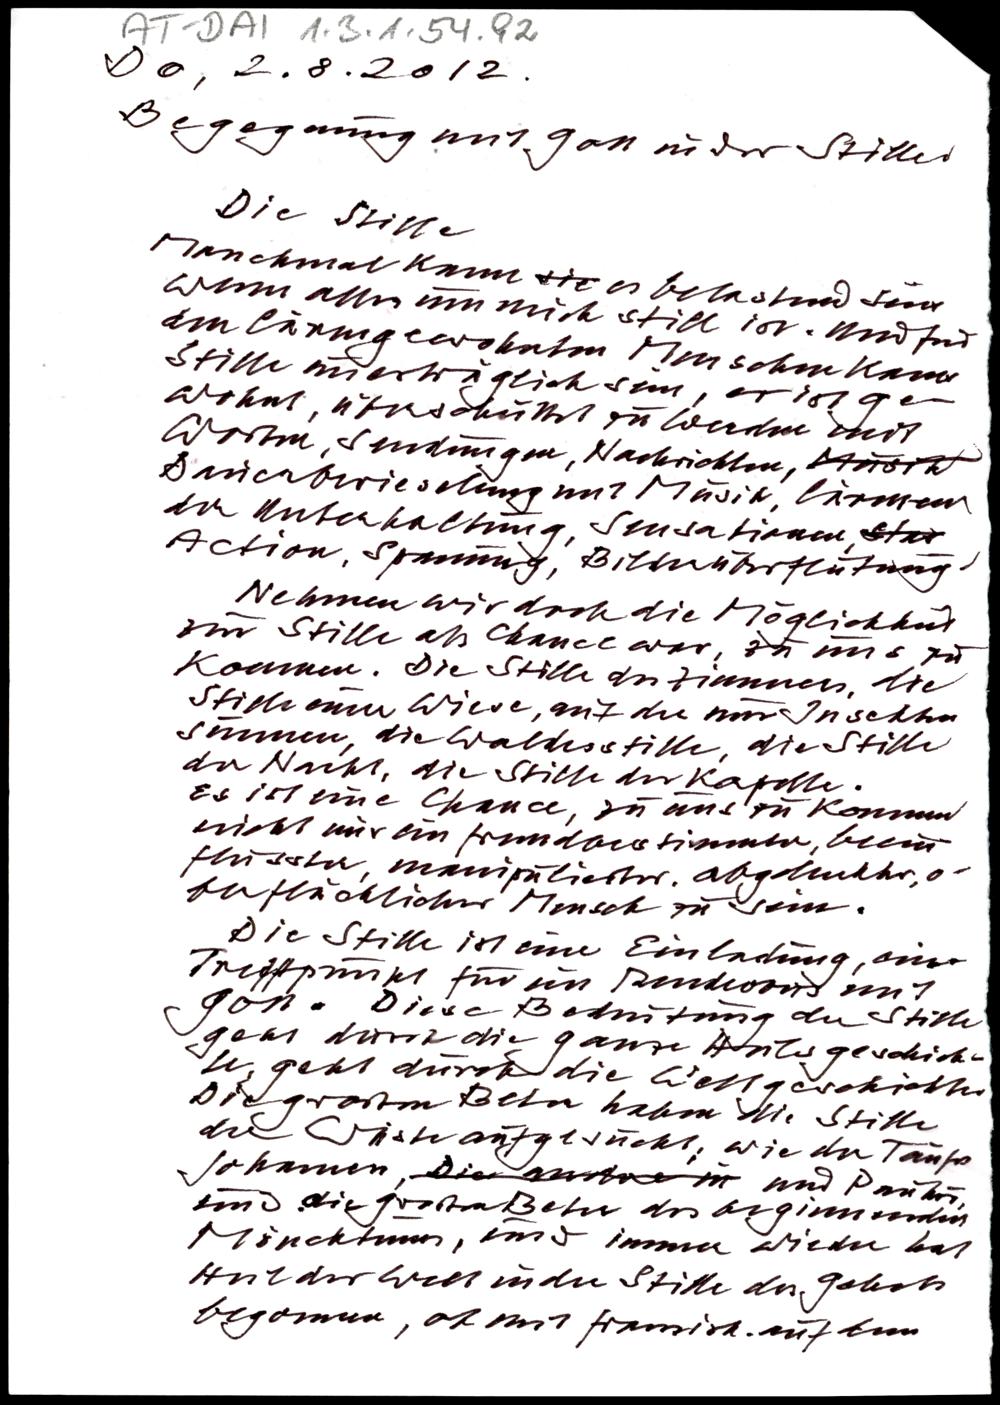 AT-DAI 1.3.1.54.92
Do, 2.8.2012.
Begegnung mit Gott in der Stille
Die Stille
Manchmal kann sie es belastend sein
wenn alles um mich still ist. Und für
den lärmgewohnten Menschen kann
Stille unerträglich sein, er ist ge-
wohnt, überschüttet zu werden mit
Worten, Sendungen, Nachrichten, Musik
Dauerberieselung mit Musik, lärmen
der Unterhaltung, Sensationen, star
Action, Spannung, Bilderüberflutung.
Nehmen wir doch die Möglichkeit
zur Stille als Chance war, zu uns zu
kommen. Die Stille des Zimmers, die
Stille einer Wiese, auf der nur Insekten
summen, die Waldesstille, die Stille
der Nacht, die Stille der Kapelle.
Es ist eine Chance, zu uns zu kommen
nicht nur ein fremdbestimmter, beein
flusster, manipulierter, abgelenkter, o-
berflächlicher Mensch zu sein.
Die Stille ist eine Einladung, ein
Treffpunkt für ein Rendevous mit
Gott. Diese Bedeutung der Stille
geht durch die ganze Heilsgeschich-
te, geht durch die Weltgeschichte
Die grossen Beter haben die Stille
der Wüste aufgesucht, wie der Täufer
Johannes, Die andere in und Paulus,
und die grossen Beter des beginnenden
Mönchtums, und immer wieder hat
Heil der Welt in der Stille des Gebets
begonnen, ob mit Franzisk. auf dem